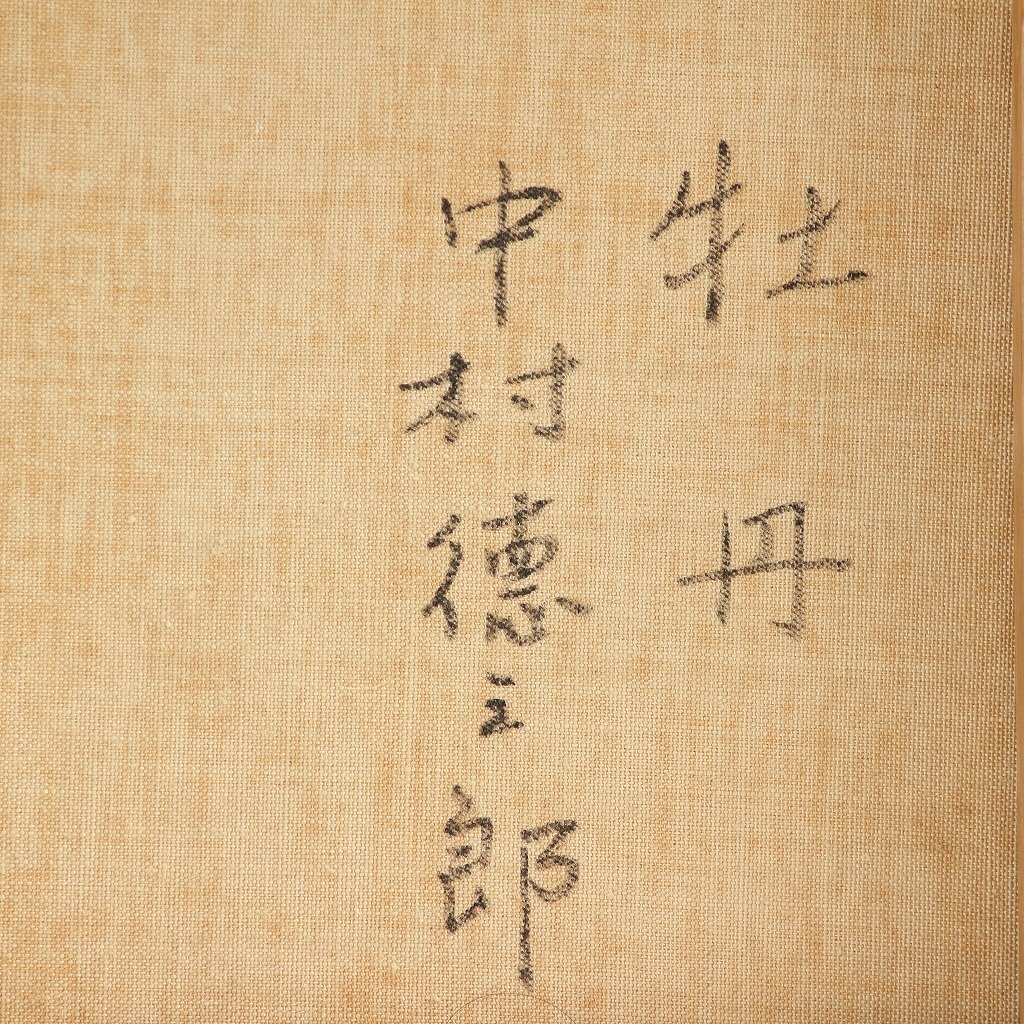 牡丹
中村徳三郎